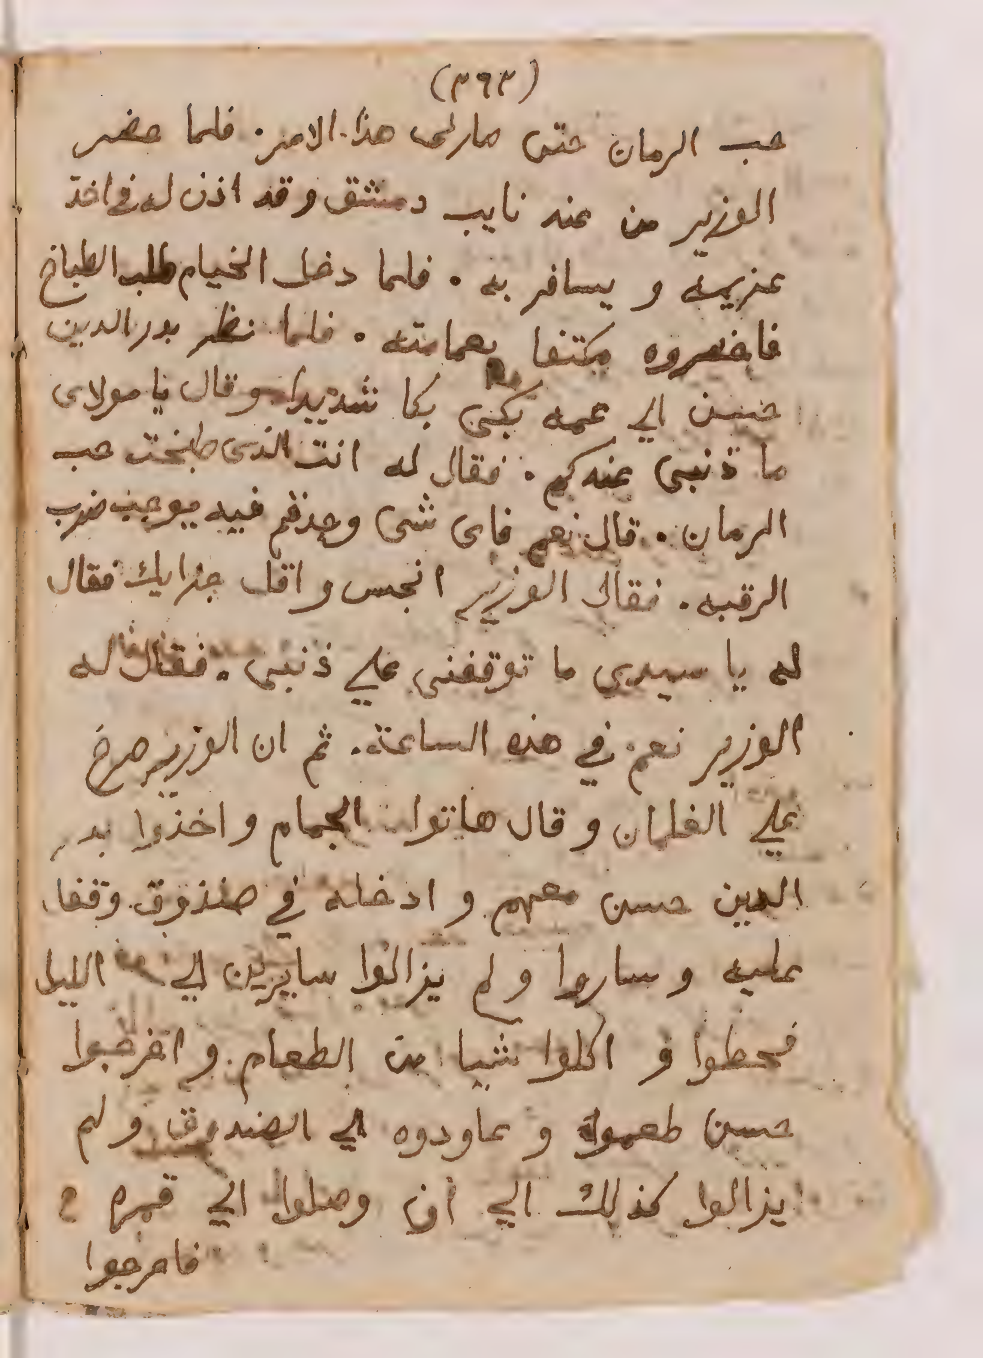 (٣٦٣)
حب الرمان حتى صار لى هذا الامر. فلما حضر
الوزير من عند نايب دمشق وقد اذن له في اخذ
غريمه و يسافر به . فلما دخل الخيام طلب الطباخ
فاحضروه مكتفا بعمامته . فلما نظر بدر الدين
حسن الي عمه بكى بكا شديدا وقال يا مولاى
ما ذنبى عندكم . فقال له انت الذى طبخت حب
الرمان . قال نعم فاى شى وجدتم فيه يوجب ضرب
الرقبه . فقال الوزير انجس واقل جزايك فقال
له يا سيدى ما توقفنى علي ذنبى . فقال له
الوزير نعم في هذه الساعة . ثم ان الوزير صرخ
علي الغلمان و قال هاتوا الجمام و اخذوا بدر
الدين حسن معهم و ادخله في صندوق وقفل
عليه و ساروا و لم يزالوا سايرين الي الليل
فحطوا و اكلوا شيا من الطعام . و اخرجوا
حسن طعموه و عاودوه الي الصندوق و لم
يزالوا كذلك الي ان وصلوا الي قمره
فاخرجوا